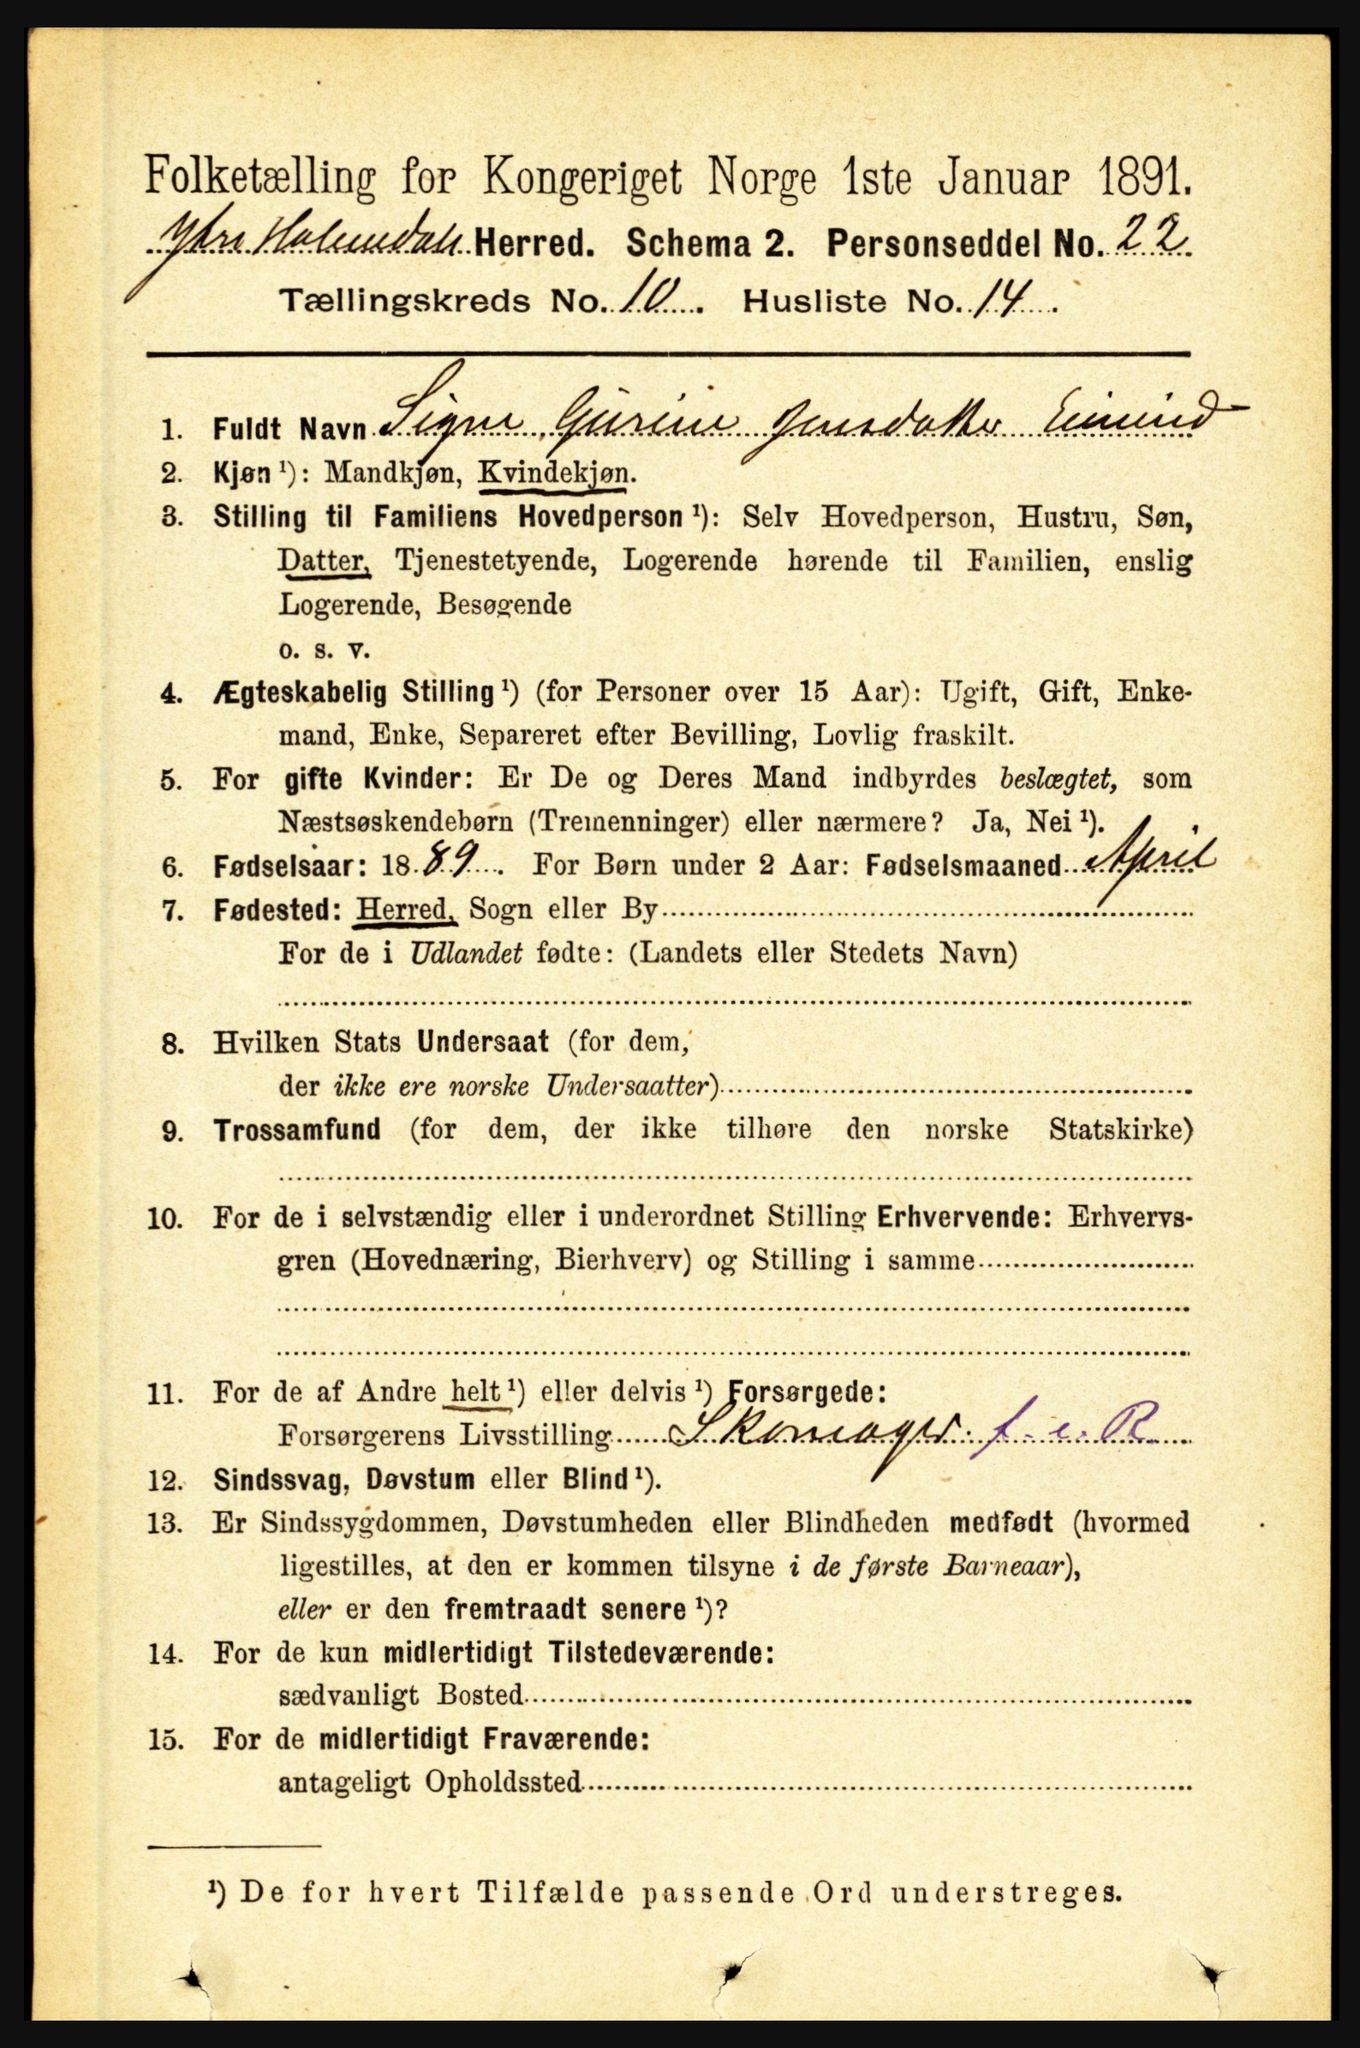 Folketælling for Kongeriget Norge 1ste Januar 1891.
Ytre Holmedals Herred. Schema 2. Personseddel No. 22
Tællingskreds No. 10. Husliste No. 14.
1. Fuldt Navn Signe Gurine Jensdatter
2. Kjøn ¹): Mandkjøn, Kvindekjøn.
3. Stilling til Familiens Hovedperson ¹): Selv Hovedperson, Hustru, Søn,
Datter, Tjenestetyende, Logerende hørende til Familien, enslig
Logerende, Besøgende
o. s. v.
4. Ægteskabelig Stilling ¹) (for Personer over 15 Aar): Ugift, Gift, Enke-
mand, Enke, Separeret efter Bevilling, Lovlig fraskilt.
5. For gifte Kvinder: Er De og Deres Mand indbyrdes beslægtet, som
Næstsøskendebørn (Tremenninger) eller nærmere? Ja, Nei ¹).
6. Fødselsaar: 1889. For Børn under 2 Aar: Fødselsmaaned April
7. Fødested: Herred, Sogn eller By
For de i Udlandet fødte: (Landets eller Stedets Navn)
8. Hvilken Stats Undersaat (for dem,
der ikke ere norske Undersaatter)
9. Trossamfund (for dem, der ikke tilhøre den norske Statskirke)
10. For de i selvstændig eller i underordnet Stilling Erhvervende: Erhvervs-
gren (Hovednæring, Bierhverv) og Stilling i samme
11. For de af Andre helt ¹) eller delvis ¹) Forsørgede:
Forsørgerens Livsstilling Skomager. f. e. R.
12. Sindssvag, Døvstum eller Blind ¹).
13. Er Sindssygdommen, Døvstumheden eller Blindheden medfødt (hvormed
ligestilles, at den er kommen tilsyne i de første Barneaar),
eller er den fremtraadt senere ¹)?
14. For de kun midlertidigt Tilstedeværende:
sædvanligt Bosted
15. For de midlertidigt Fraværende:
antageligt Opholdssted
¹) De for hvert Tilfælde passende Ord understreges.